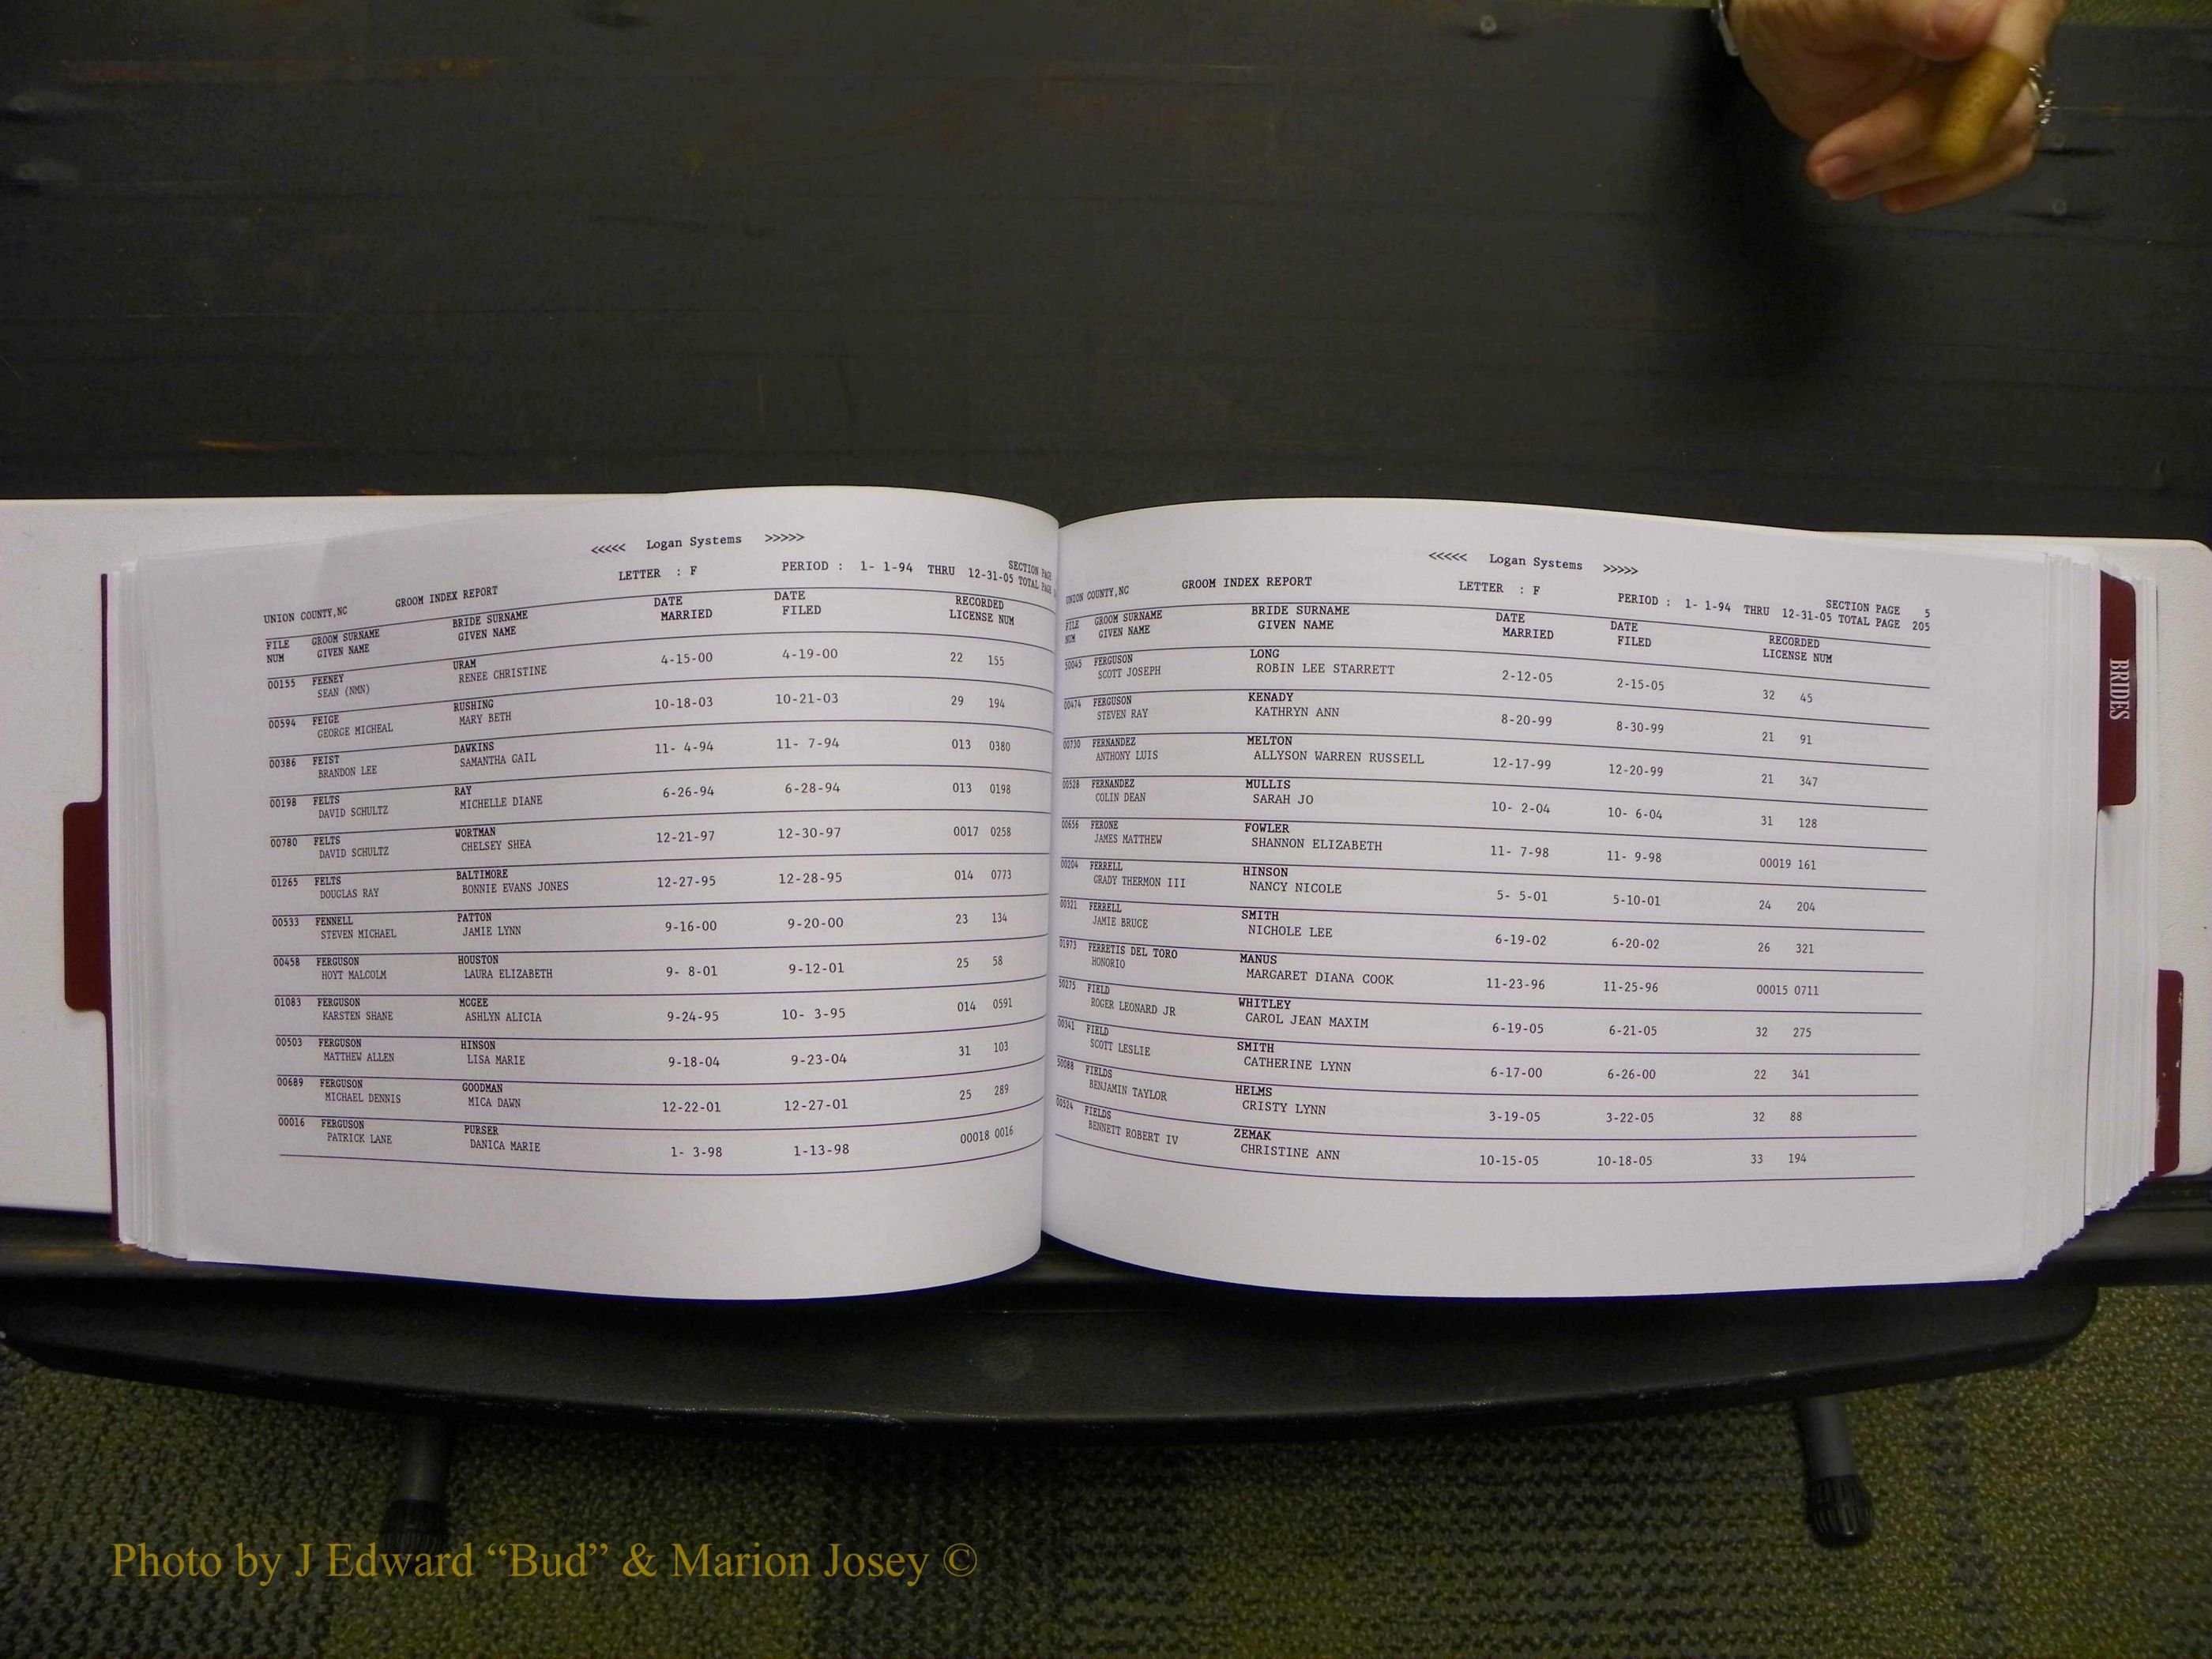 <<<<< Logan Systems >>>>>
UNION COUNTY,NC GROOM INDEX REPORT LETTER : F PERIOD : 1- 1-94 THRU 12-31-05 SECTION PAGE
TOTAL PAGE
FILE GROOM SURNAME BRIDE SURNAME DATE DATE RECORDED
NUM GIVEN NAME GIVEN NAME MARRIED FILED LICENSE NUM
00155 FEENEY URAM 4-15-00 4-19-00 22 155
SEAN (NMN) RENEE CHRISTINE
00594 FEIGE RUSHING 10-18-03 10-21-03 29 194
GEORGE MICHEAL MARY BETH
00386 FEIST DAWKINS 11- 4-94 11- 7-94 013 0380
BRANDON LEE SAMANTHA GAIL
00198 FELTS RAY 6-26-94 6-28-94 013 0198
DAVID SCHULTZ MICHELLE DIANE
00780 FELTS WORTMAN 12-21-97 12-30-97 0017 0258
DAVID SCHULTZ CHELSEY SHEA
01265 FELTS BALTIMORE 12-27-95 12-28-95 014 0773
DOUGLAS RAY BONNIE EVANS JONES
00533 FENNELL PATTON 9-16-00 9-20-00 23 134
STEVEN MICHAEL JAMIE LYNN
00458 FERGUSON HOUSTON 9- 8-01 9-12-01 25 58
HOYT MALCOLM LAURA ELIZABETH
01083 FERGUSON MCGEE 9-24-95 10- 3-95 014 0591
KARSTEN SHANE ASHLYN ALICIA
00503 FERGUSON HINSON 9-18-04 9-23-04 31 103
MATTHEW ALLEN LISA MARIE
00689 FERGUSON GOODMAN 12-22-01 12-27-01 25 289
MICHAEL DENNIS MICA DAWN
00016 FERGUSON PURSER 1- 3-98 1-13-98 00018 0016
PATRICK LANE DANICA MARIE
<<<<< Logan Systems >>>>>
UNION COUNTY,NC GROOM INDEX REPORT LETTER : F PERIOD : 1- 1-94 THRU 12-31-05 SECTION PAGE 5
TOTAL PAGE 205
FILE GROOM SURNAME BRIDE SURNAME DATE DATE RECORDED
NUM GIVEN NAME GIVEN NAME MARRIED FILED LICENSE NUM
50045 FERGUSON LONG 2-12-05 2-15-05 32 45
SCOTT JOSEPH ROBIN LEE STARRETT
00474 FERGUSON KENADY 8-20-99 8-30-99 21 91
STEVEN RAY KATHRYN ANN
00730 FERNANDEZ MELTON 12-17-99 12-20-99 21 347
ANTHONY LUIS ALLYSON WARREN RUSSELL
00528 FERNANDEZ MULLIS 10- 2-04 10- 6-04 31 128
COLIN DEAN SARAH JO
00656 FERONE FOWLER 11- 7-98 11- 9-98 00019 161
JAMES MATTHEW SHANNON ELIZABETH
00204 FERRELL HINSON 5- 5-01 5-10-01 24 204
GRADY THERMON III NANCY NICOLE
00321 FERRELL SMITH 6-19-02 6-20-02 26 321
JAMIE BRUCE NICHOLE LEE
01973 FERRETIS DEL TORO MANUS 11-23-96 11-25-96 00015 0711
HONORIO MARGARET DIANA COOK
50275 FIELD WHITLEY 6-19-05 6-21-05 32 275
ROGER LEONARD JR CAROL JEAN MAXIM
00341 FIELD SMITH 6-17-00 6-26-00 22 341
SCOTT LESLIE CATHERINE LYNN
50088 FIELDS HELMS 3-19-05 3-22-05 32 88
BENJAMIN TAYLOR CRISTY LYNN
00524 FIELDS ZEMAK 10-15-05 10-18-05 33 194
BENNETT ROBERT IV CHRISTINE ANN
BRIDES
Photo by J Edward “Bud” & Marion Josey ©